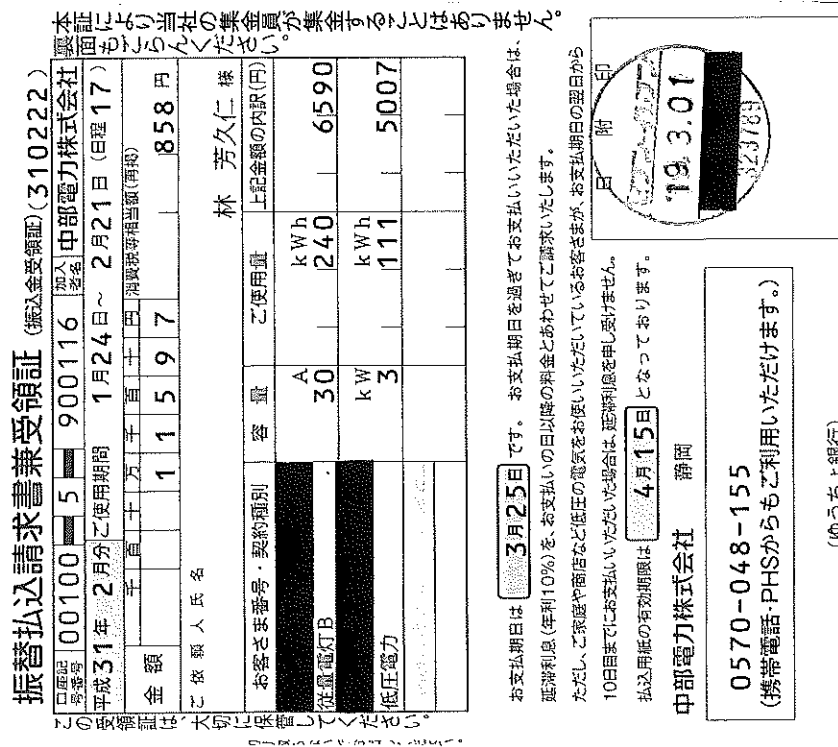 振替払込請求書兼受領証 (振込金受領証)(310222)
口座記号番号 00100 5 900116 加入者名 中部電力株式会社
平成31年 2月分 ご使用期間 1月24日～ 2月21日 (日程17)
金額 千百十万千百十円 11597 消費税等相当額(再掲) 858円
ご依頼人氏名
林 芳久仁 様
お客さま番号・契約種別 容量 ご使用量 上記金額の内訳(円)
従量電灯B A 30 kWh 240 6590
低圧電力 kW 3 kWh 111 5007
この受領証は、大切に保管してください。
本証により当社の集金員が集金することはありません。
裏面もごらんください。
お支払期日は 3月25日 です。 お支払期日を過ぎてお支払いいただいた場合は、
延滞利息(年利10%)を、お支払いの日以降の料金とあわせてご請求いたします。
ただし、ご家庭や商店など低圧の電気をお使いいただいているお客さまが、お支払期日の翌日から
10日目までにお支払いいただいた場合は、延滞利息を申し受けません。
払込用紙の有効期限は 4月15日 となっております。
中部電力株式会社 静岡
0570-048-155
(携帯電話・PHSからもご利用いただけます。)
(ゆうちょ銀行)
日附印
'19.3.01
323789